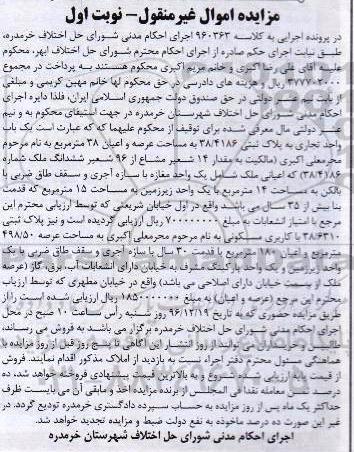 مزایده اموال غیرمنقول – نوبت اول
در پرونده اجرایی به کلاسه ۹۶۰۳۶۳ اجرای احکام مدنی شورای حل اختلاف خرمدره،
طبق نیابت اجرای حکم صادره از اجرای احکام محترم شورای حل اختلاف ابهر، محکوم
علیهم آقای علی رضا اکبری و خانم مریم اکبری محکوم هستند به پرداخت در مجموع
ریال و هزینه های دادرسی در حق محکوم لها خانم مهین کریمی و مبلغی
از بابت نیم عشر دولتی در حق صندوق دولت جمهوری اسلامی ایران، فلذا دایره اجرای
احکام مدنی شورای حل اختلاف شهرستان خرمدره در جهت استیفای محکوم به و نیم
عشر دولتی مال معرفی شده برای توقیف از محکوم علیهما که عبارت است یک باب
واحد تجاری به پلاک ثبتی ۳۸/۴۱۸۶ به مساحت عرصه و اعیان ۳۸ مترمربع به نام مرحوم
محرمعلی اکبری (مالکیت به مقدار ۱۴ شعیر مشاع از ۹۶ شعیر ششدانگ ملک شماره
۳۸/۴۱۸۶) که اعیانی ملک شامل یک واحد مغازه با سازه آجری و سقف طاق ضربی با
بالکن به مساحت ۱۴ مترمربع با یک واحد زیرزمین به مساحت ۱۵ مترمربع که قدمت
بنا بیش از ۳۵ سال می باشد واقع در اول خیابان شریعتی که توسط ارزیابی محترم این
مرجع با امتیاز انشعابات به مبلغ ۷۰۰۰۰۰۰۰۰ ریال ارزیابی گردیده است و نیز پلاک ثبتی
۳۸/۶۳۱۰ با کاربری مسکونی به نام مرحوم محرمعلی اکبری به مساحت عرصه ۴۹۸/۵۰
مترمربع و اعیان مترمربع با قدمت ۳۰ سال با سازه آجری و سقف طاق ضربی با یک
واحد انباری و یک واحد پارکینگ مشرف به خیابان دارای انشعابات آب، برق، گاز (عرصه
ملک از سمت خیابان دارای اصلاحی می باشد) واقع در خیابان مطهری که توسط ارزیاب
محترم این مرجع (عرصه و اعیان) به مبلغ ۱۸۵۰۰۰۰۰۰۰ ریال ارزیابی شده است را از
طریق مزایده حضوری که به تاریخ ۹۶/۱۲/۱۹ روز شنبه رأس ساعت ۱۰ صبح در محل
اجرای احکام مدنی شورای حل اختلاف خرمدره برگزار می باشد به فروش می رساند،
توانند از روز انتشار این آگاهی تا پنج روز قبل از روز مزایده با
هماهنگی مسئول محترم دفتر اجراء نسبت به بازدید از املاک مذکور اقدام نمایند. فروش
از قیمت پایه ارزیابی شده شروع و به بالاترین قیمت پیشنهادی فروخته خواهد شد، ده
درصد ثمن معامله نقدا فی المجلس از برنده مزایده اخذ و مابقی آن می بایست ظرف
حداکثر یک ماه پس از روز مزایده به حساب سپرده دادگستری خرمدره تودیع گردد. در
غیر این صورت ده درصد ماخوذه به نفع دولت ضبط و مزایده تجدید خواهد شد.
اجرای احکام مدنی شورای حل اختلاف شهرستان خرمدره